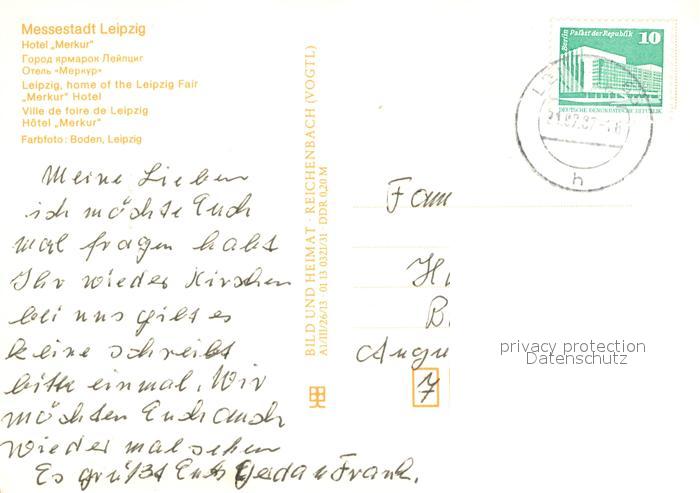 Messestadt Leipzig
Hotel „Merkur"
Город ярмарок Лейпциг
Отель «Меркур»
Leipzig, home of the Leipzig Fair
„Merkur" Hotel
Ville de foire de Leipzig
Hôtel „Merkur"
Farbfoto: Boden, Leipzig
Meine Lieben
ich möchte Euch
mal fragen habt
Ihr wieder Kirschen
bei uns gibt es
keine schreibt
bitte einmal. Wir
möchten Euch auch
wieder mal sehen
Es grüßt Euch Gerda u Frank.
BILD UND HEIMAT · REICHENBACH (VOGTL)
A1/III/26/13 01 13 0321/31 DDR 0,20 M
Berlin Palast der Republik 10
DEUTSCHE DEMOKRATISCHE REPUBLIK
h
Fam
H
B
Augu
7
privacy protection
Datenschutz